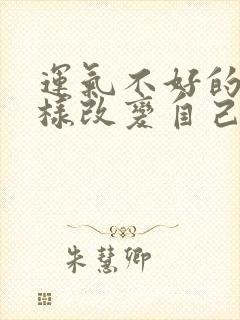 運氣不好的
樣改變自己
朱慧卿